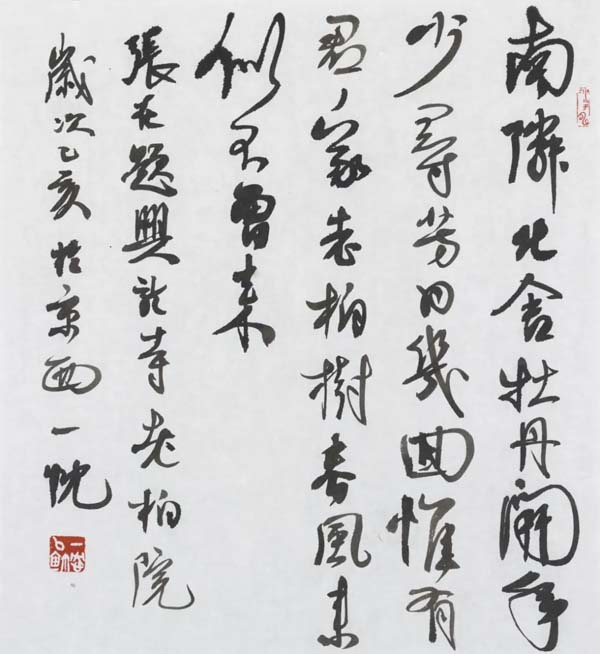 南隣北舍牡丹開年
少尋芳日幾回惟有
君家老柏樹春風来
似不曾来
張在題興龍寺老柏院
歲次己亥於京西一忱